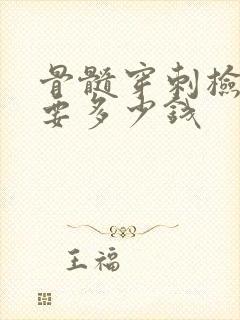 骨髓穿刺检
要多少钱
王福